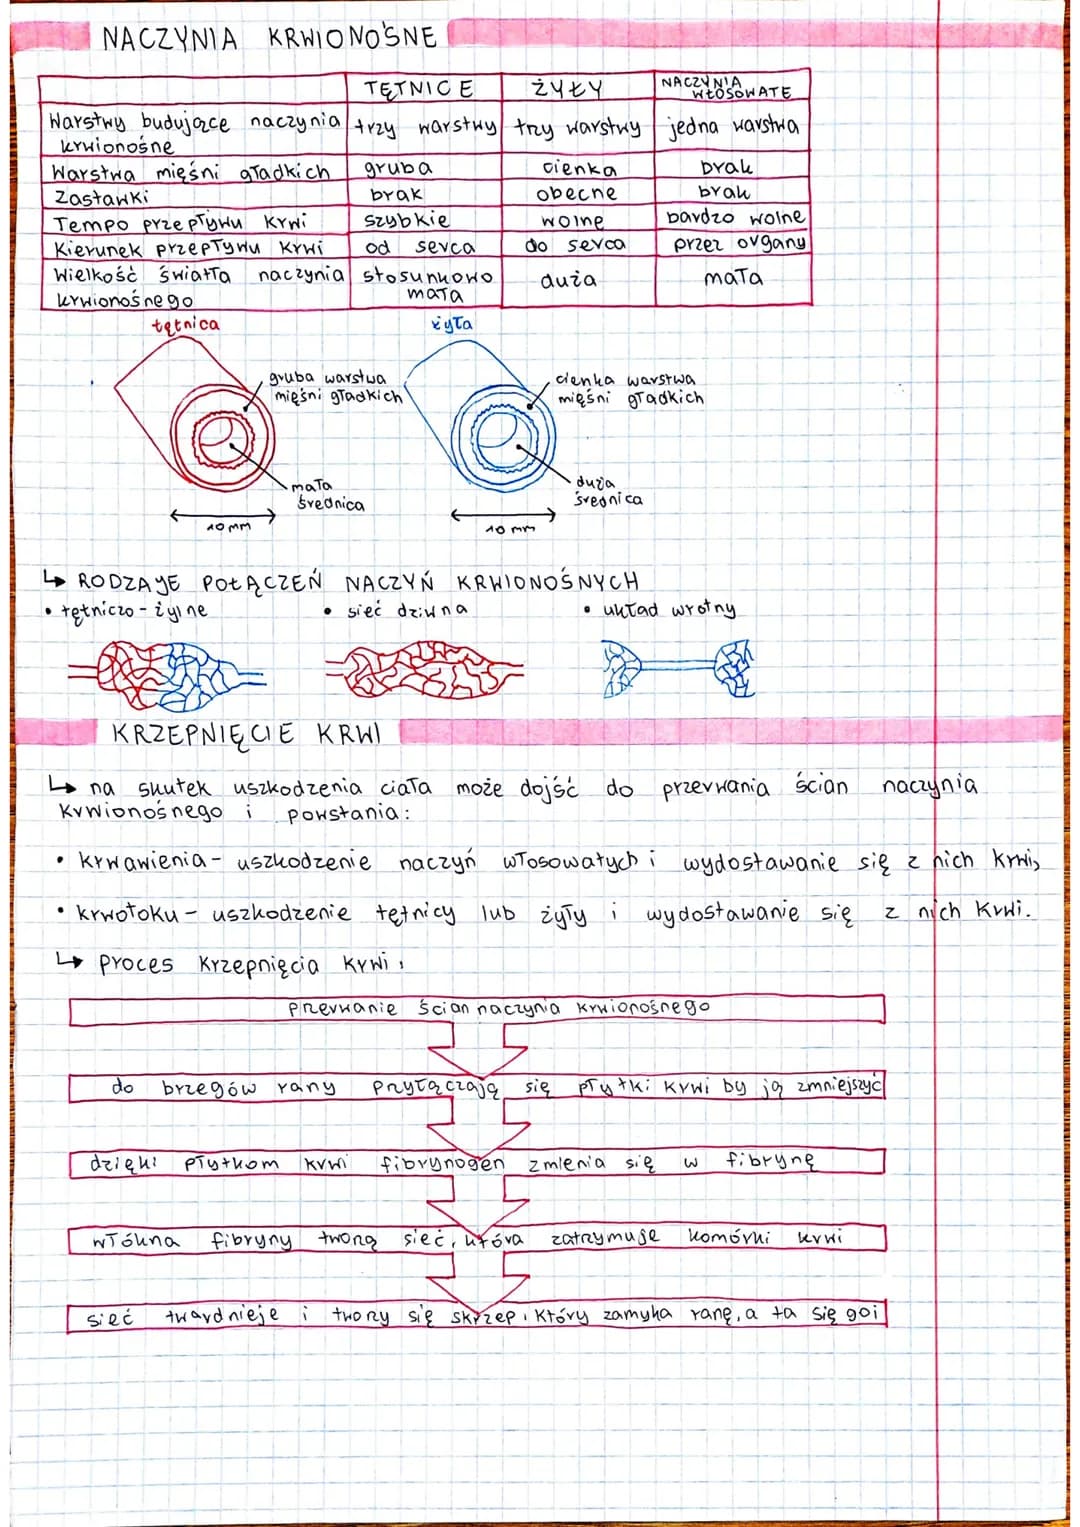 NACZYNIA KRWIONOŚNE
TĘTNICE ŻYŁY NACZYNIA WŁOSOWATE
Warstwy budujące naczynia krwionośne trzy warstwy trzy warstwy jedna warstwa
Warstwa mięśni gładkich gruba cienka brak
Zastawki brak obecne brak
Tempo przepływu krwi szybkie wolne bardzo wolne
Kierunek przepływu krwi od serca do serca przez organy
Wielkość światła naczynia krwionośnego stosunkowo mała duża mała
tętnica żyła
gruba warstwa
mięśni gładkich
cienka warstwa
mięśni gładkich
mała
średnica
duża
średnica
10 mm 10 mm
↳ RODZAJE POŁĄCZEŃ NACZYŃ KRWIONOŚNYCH
• tętniczo - żylne • sieć dziwna • układ wrotny
KRZEPNIĘCIE KRWI
↳ na skutek uszkodzenia ciała może dojść do przerwania ścian naczynia
krwionośnego i powstania:
• krwawienia - uszkodzenie naczyń włosowatych i wydostawanie się z nich krwi,
• krwotoku - uszkodzenie tętnicy lub żyły i wydostawanie się z nich krwi.
↳ proces krzepnięcia krwi:
przerwanie ścian naczynia krwionośnego
do brzegów rany przyłączają się płytki krwi by ją zmniejszyć
dzięki płytkom krwi fibrynogen zmienia się w fibrynę
włókna fibryny tworzą sieć, która zatrzymuje komórki krwi
sieć twardnieje i tworzy się skrzep, który zamyka ranę, a ta się goi